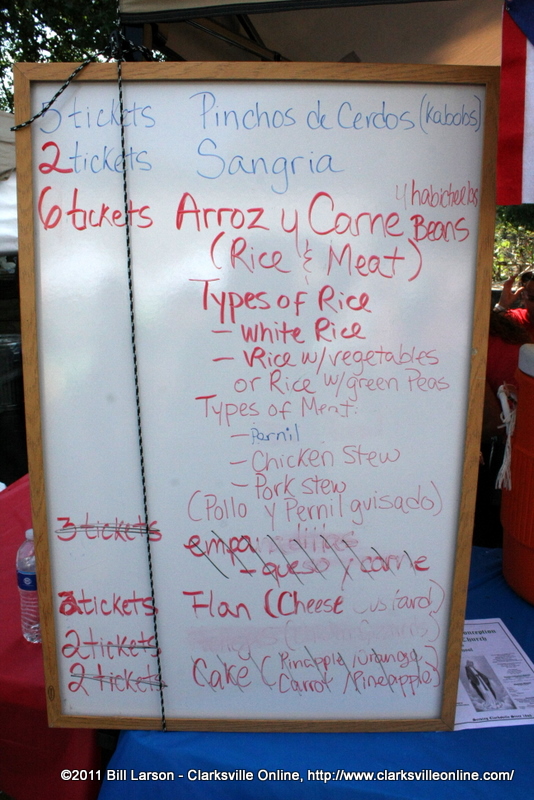 5 tickets Pinchos de Cerdos (kabobs)
2 tickets Sangria
y habichuelas
6 tickets Arroz y Carne Beans
(Rice & Meat)
Types of Rice
- White Rice
- Rice w/vegetables
or Rice w/green Peas
Types of Meat:
- Pernil
- Chicken Stew
- Pork Stew
(Pollo y Pernil guisado)
3 tickets empa
- queso y carne
tickets Flan (Cheese custard)
2 tickets
2 tickets Cake (Pineapple/orange
Carrot/Pineapple)
Church
©2011 Bill Larson - Clarksville Online, http://www.clarksvilleonline.com/